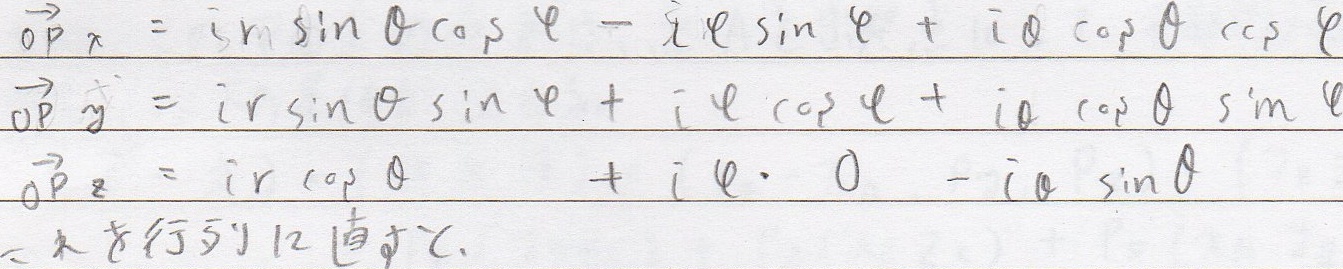 →OP x = ir sin θ cos φ − iφ sin φ + iθ cos θ cos φ
→OP y = ir sin θ sin φ + iφ cos φ + iθ cos θ sin φ
→OP z = ir cos θ + iφ・0 − iθ sin θ
これを行列に直すと、